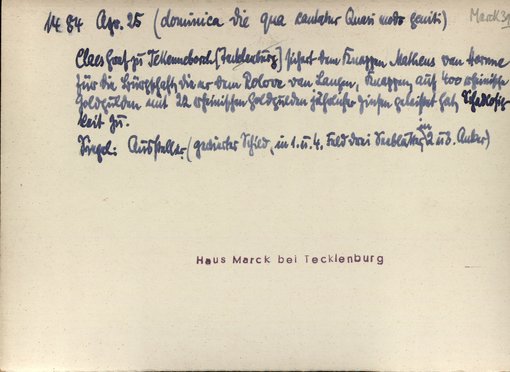 1484 Apr. 25 (dominica die qua cantatur Quasi modo geniti)
Marck 31
Claes Graf zu Tekenneborch [Tecklenburg] sichert dem Knappen Matheus van Horne
für die Bürgschaft, die er dem Rolove van Langen, Knappen, auf 400 rheinische
Goldgulden mit 22 rheinischen Goldgulden jährlicher Zinsen geleistet hat, Schadlosig-
keit zu.
Siegel: Aussteller (gevierter Schild, in 1. u. 4. Feld drei Seeblätter, in 2 u. 3. Anker)
Haus Marck bei Tecklenburg